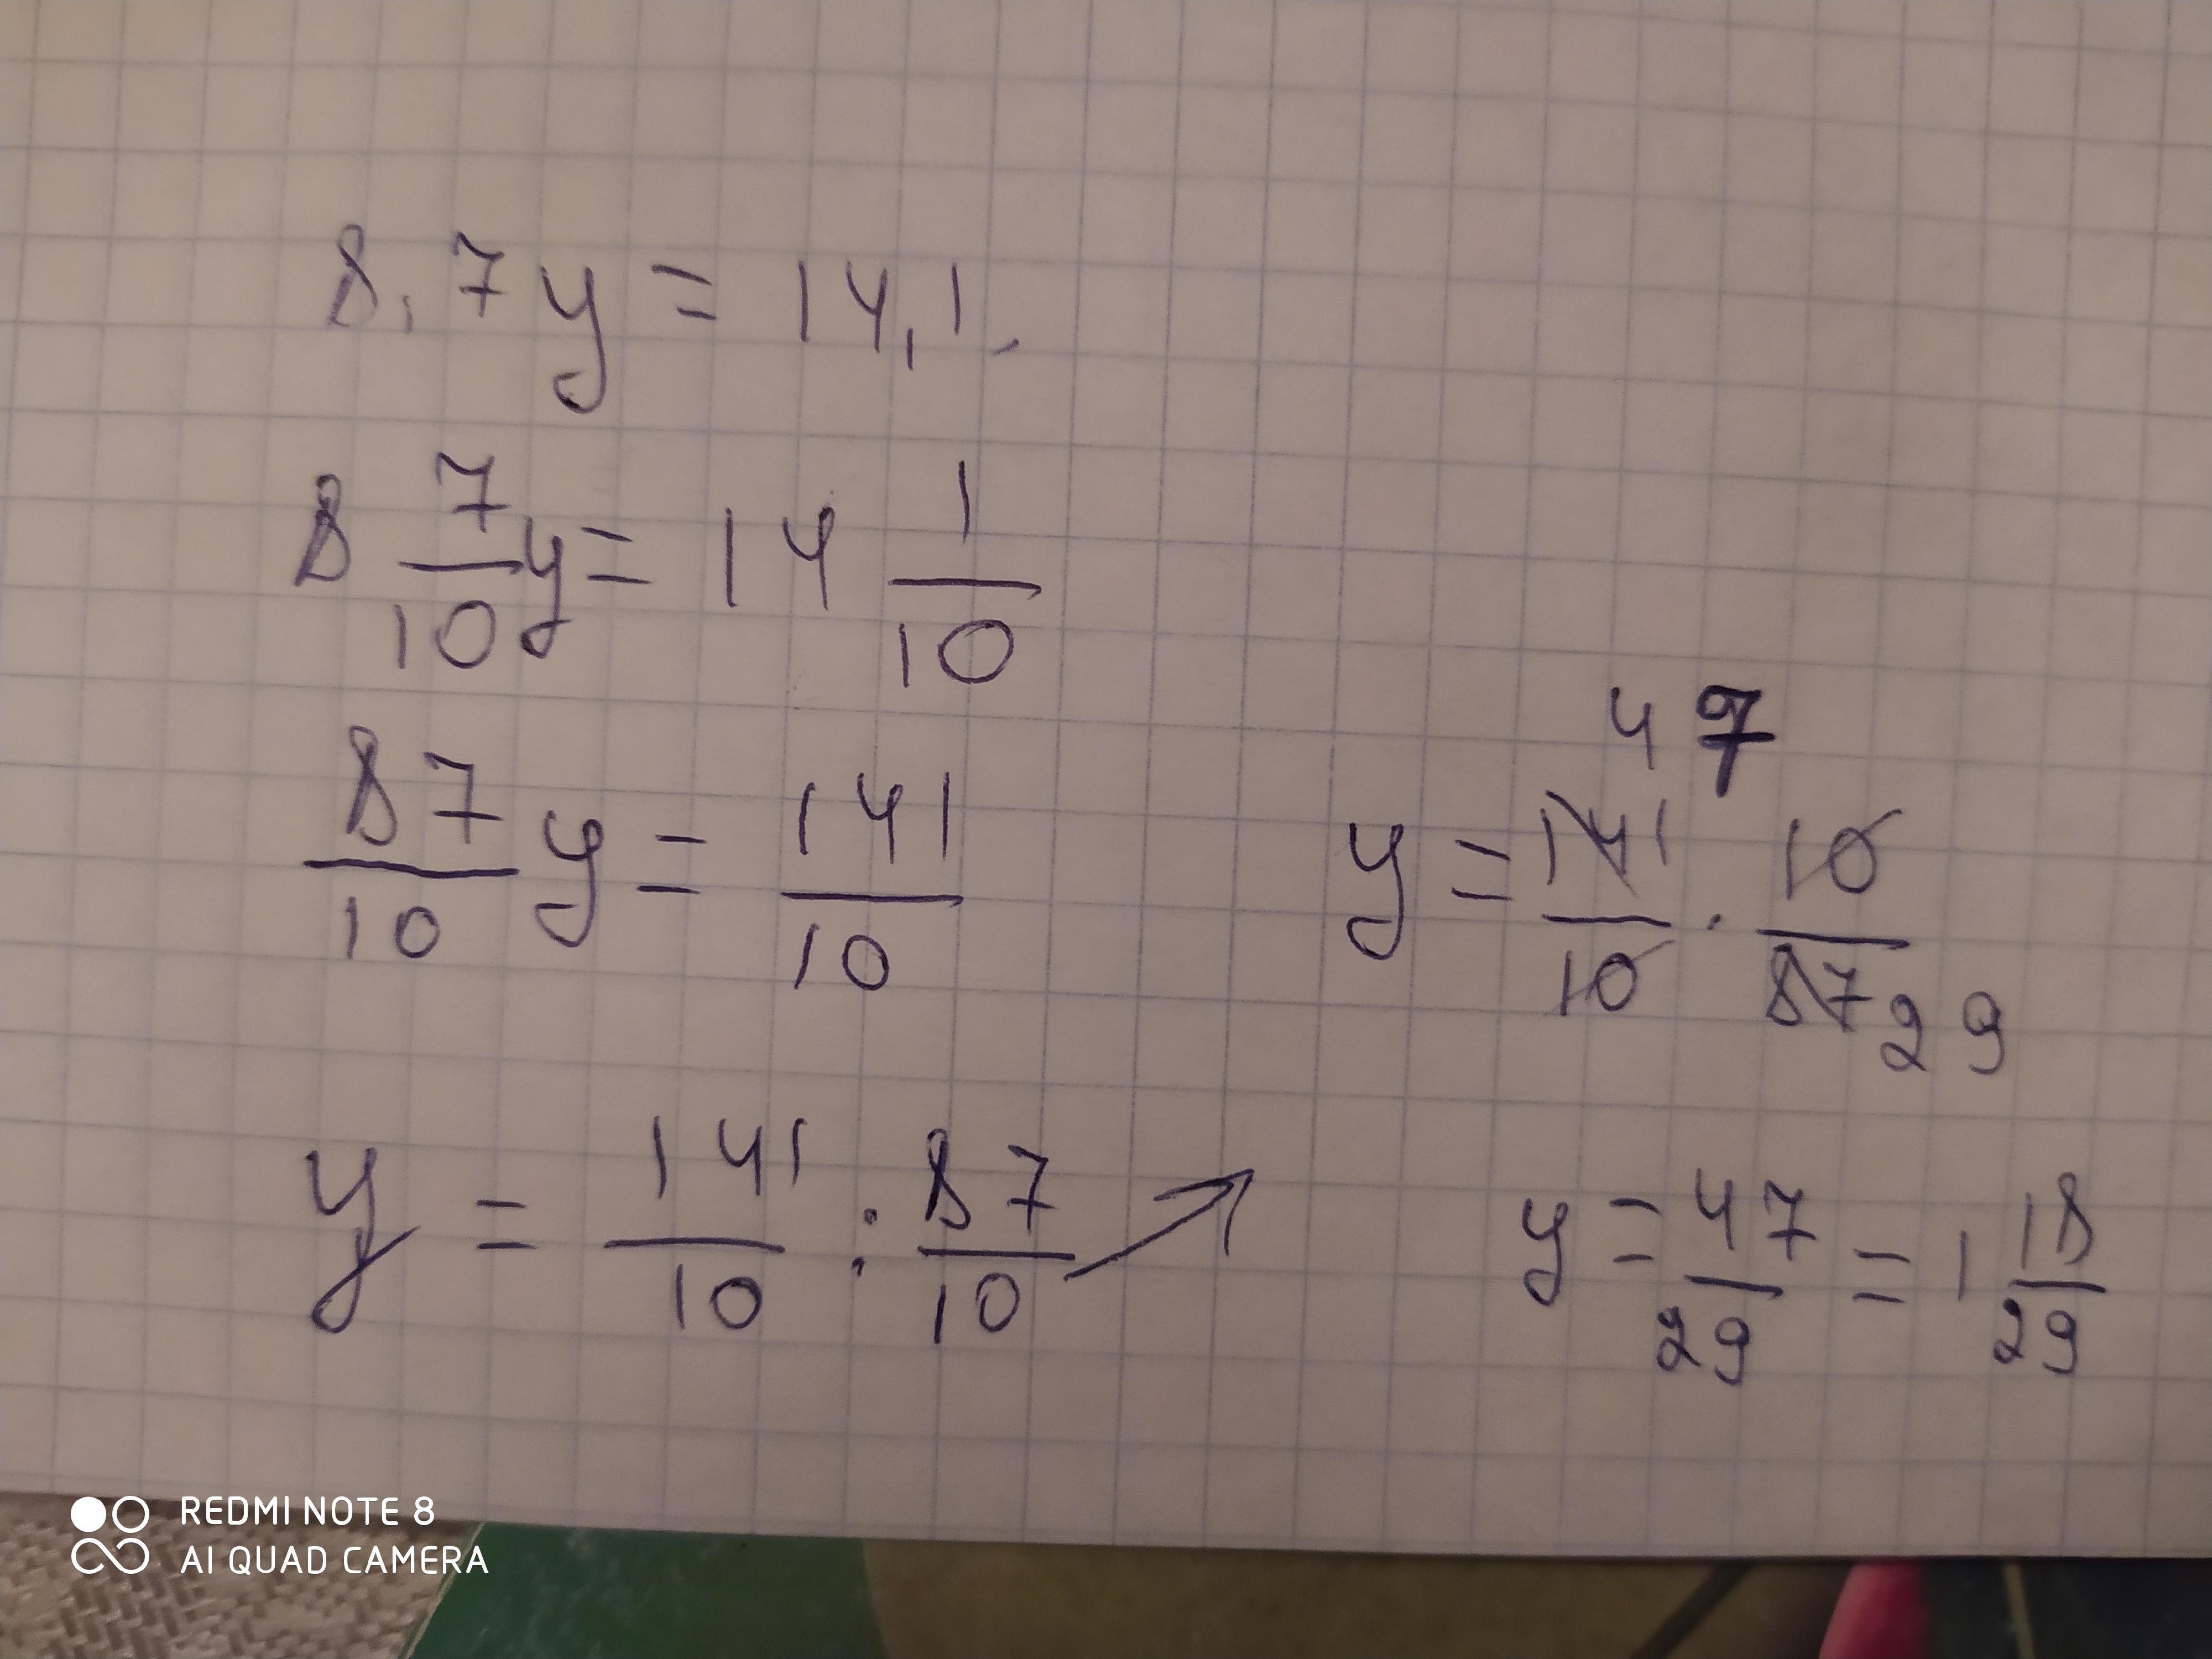 8,7y = 14,1.
8 7/10 y = 14 1/10
87/10 y = 141/10
y = 141/10 : 87/10
47
y = 141/10 · 10/87 29
y = 47/29 = 1 18/29
REDMI NOTE 8
AI QUAD CAMERA